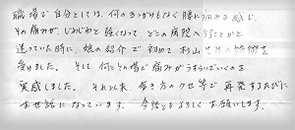 職場で自分としては、何のきっかけもなく腰に痛みを感じ、
その痛みがじわじわと強くなって どこの病院へ
迷っていた時に、娘の紹介で初めて杉山
受けました。そして、何とその場で痛みがうすらいでいくのを
実感しました。それ以来、歩き方のクセ等で再発するたびに
お世話になっています。今後ともよろしくお願いします。